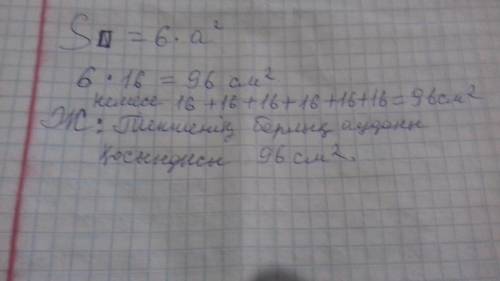 S = 6·a²
6 · 16 = 96 см²
немесе 16+16+16+16+16+16=96см²
Ж: барлық ауданы
қосындысы 96 см².